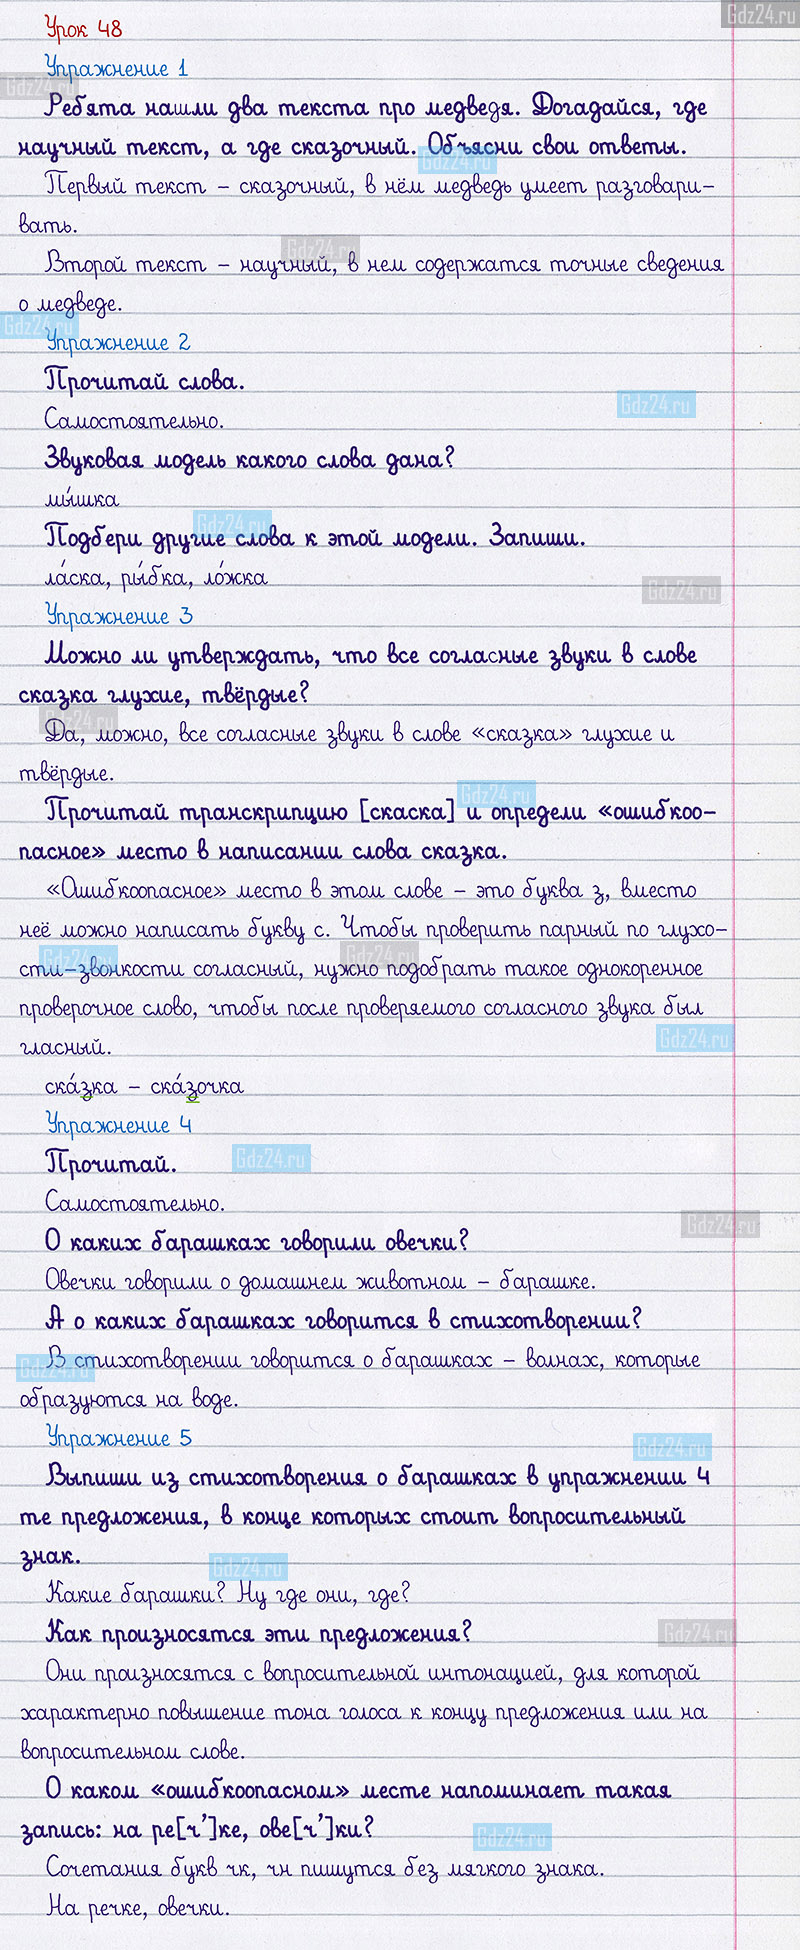 Gdz24.ru
Урок 48
Упражнение 1
Gdz24.ru
Ребята нашли два текста про медведя. Догадайся, где
научный текст, а где сказочный. Объясни свои ответы.
Gdz24.ru
Первый текст – сказочный, в нём медведь умеет разговари-
вать.
Gdz24.ru
Второй текст – научный, в нем содержатся точные сведения
о медведе.
Gdz24.ru
Упражнение 2
Прочитай слова.
Gdz24.ru
Самостоятельно.
Звуковая модель какого слова дана?
мы́шка
Gdz24.ru
Подбери другие слова к этой модели. Запиши.
ла́ска, ры́бка, ло́жка
Gdz24.ru
Упражнение 3
Можно ли утверждать, что все согласные звуки в слове
сказка глухие, твёрдые?
Gdz24.ru
Да, можно, все согласные звуки в слове «сказка» глухие и
твёрдые.
Gdz24.ru
Прочитай транскрипцию [скаска] и определи «ошибкоо-
пасное» место в написании слова сказка.
«Ошибкоопасное» место в этом слове – это буква з, вместо
неё можно написать букву с. Чтобы проверить парный по глухо-
Gdz24.ru
Gdz24.ru
сти-звонкости согласный, нужно подобрать такое однокоренное
проверочное слово, чтобы после проверяемого согласного звука был
Gdz24.ru
гласный.
ска́зка – ска́зочка
Упражнение 4
Прочитай.
Gdz24.ru
Самостоятельно.
Gdz24.ru
О каких барашках говорили овечки?
Овечки говорили о домашнем животном – барашке.
А о каких барашках говорится в стихотворении?
Gdz24.ru
В стихотворении говорится о барашках – волнах, которые
образуются на воде.
Упражнение 5
Gdz24.ru
Выпиши из стихотворения о барашках в упражнении 4
те предложения, в конце которых стоит вопросительный
знак.
Gdz24.ru
Какие барашки? Ну где они, где?
Как произносятся эти предложения?
Gdz24.ru
Они произносятся с вопросительной интонацией, для которой
характерно повышение тона голоса к концу предложения или на
вопросительном слове.
О каком «ошибкоопасном» месте напоминает такая
запись: на ре[ч’]ке, ове[ч’]ки?
Gdz24.ru
Сочетания букв чк, чн пишутся без мягкого знака.
На речке, овечки.